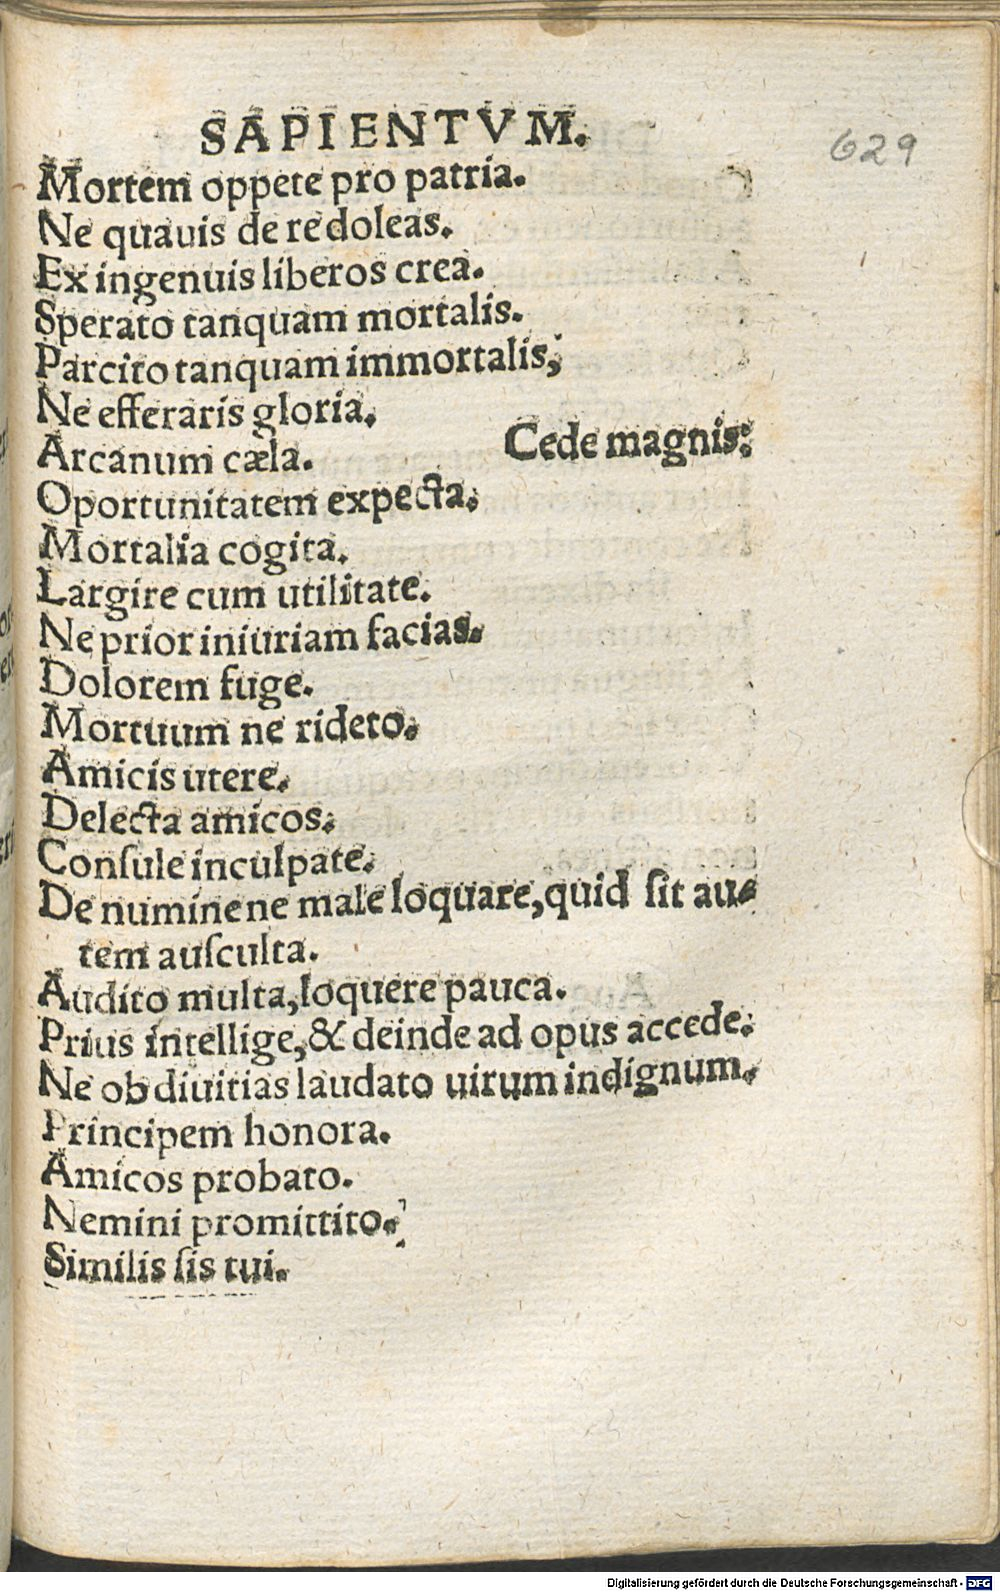 SAPIENTVM.
629
Mortem oppete pro patria.
Ne quauis de re doleas.
Ex ingenuis liberos crea.
Sperato tanquam mortalis.
Parcito tanquam immortalis,
Ne efferaris gloria.
Arcanum cæla. Cede magnis.
Oportunitatem expecta.
Mortalia cogita.
Largire cum utilitate.
Ne prior iniuriam facias.
Dolorem fuge.
Mortuum ne rideto.
Amicis utere.
Delecta amicos.
Conſule inculpate.
De numine ne male loquare, quid ſit au-
tem auſculta.
Audito multa, loquere pauca.
Prius intellige, & deinde ad opus accede.
Ne ob diuitias laudato uirum indignum.
Principem honora.
Amicos probato.
Nemini promittito.
Similis ſis tui.
Digitalisierung gefördert durch die Deutsche Forschungsgemeinschaft - DFG